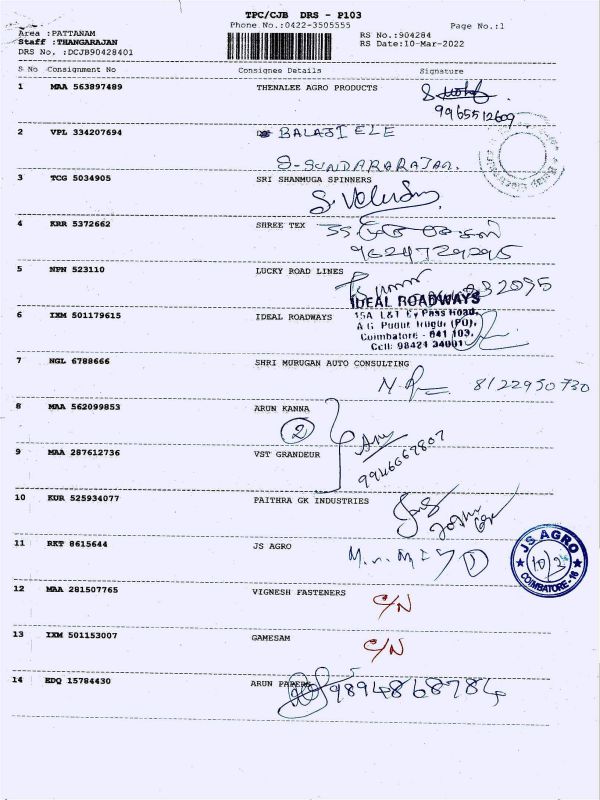 TPC/CJB DRS - P103
Phone No.:0422-3505555
Page No.:1
Area :PATTANAM
Staff :THANGARAJAN
DRS No. :DCJB90428401
RS No.:904284
RS Date:10-Mar-2022
S No Consignment No Consignee Details Signature
1 MAA 563897489 THENALEE AGRO PRODUCTS
9965512609
2 VPL 334207694 BALAJI ELE
S-SUNDARARAJAN.
3 TCG 5034905 SRI SHANMUGA SPINNERS
4 KRR 5372662 SHREE TEX
5 NPN 523110 LUCKY ROAD LINES
6 IXM 501179615 IDEAL ROADWAYS
IDEAL ROADWAYS
15A L&T By Pass Road,
Coimbatore - 641 103.
Cell: 98424 34001
7 NGL 6788666 SHRI MURUGAN AUTO CONSULTING
8122950730
8 MAA 562099853 ARUN KANNA
2
9 MAA 287612736 VST GRANDEUR
10 KUR 525934077 PAITHRA GK INDUSTRIES
11 RKT 8615644 JS AGRO
JS AGRO
COIMBATORE-16
12 MAA 281507765 VIGNESH FASTENERS C/N
13 IXM 501153007 GAMESAM C/N
14 EDQ 15784430 ARUN PAPERS 9894868784